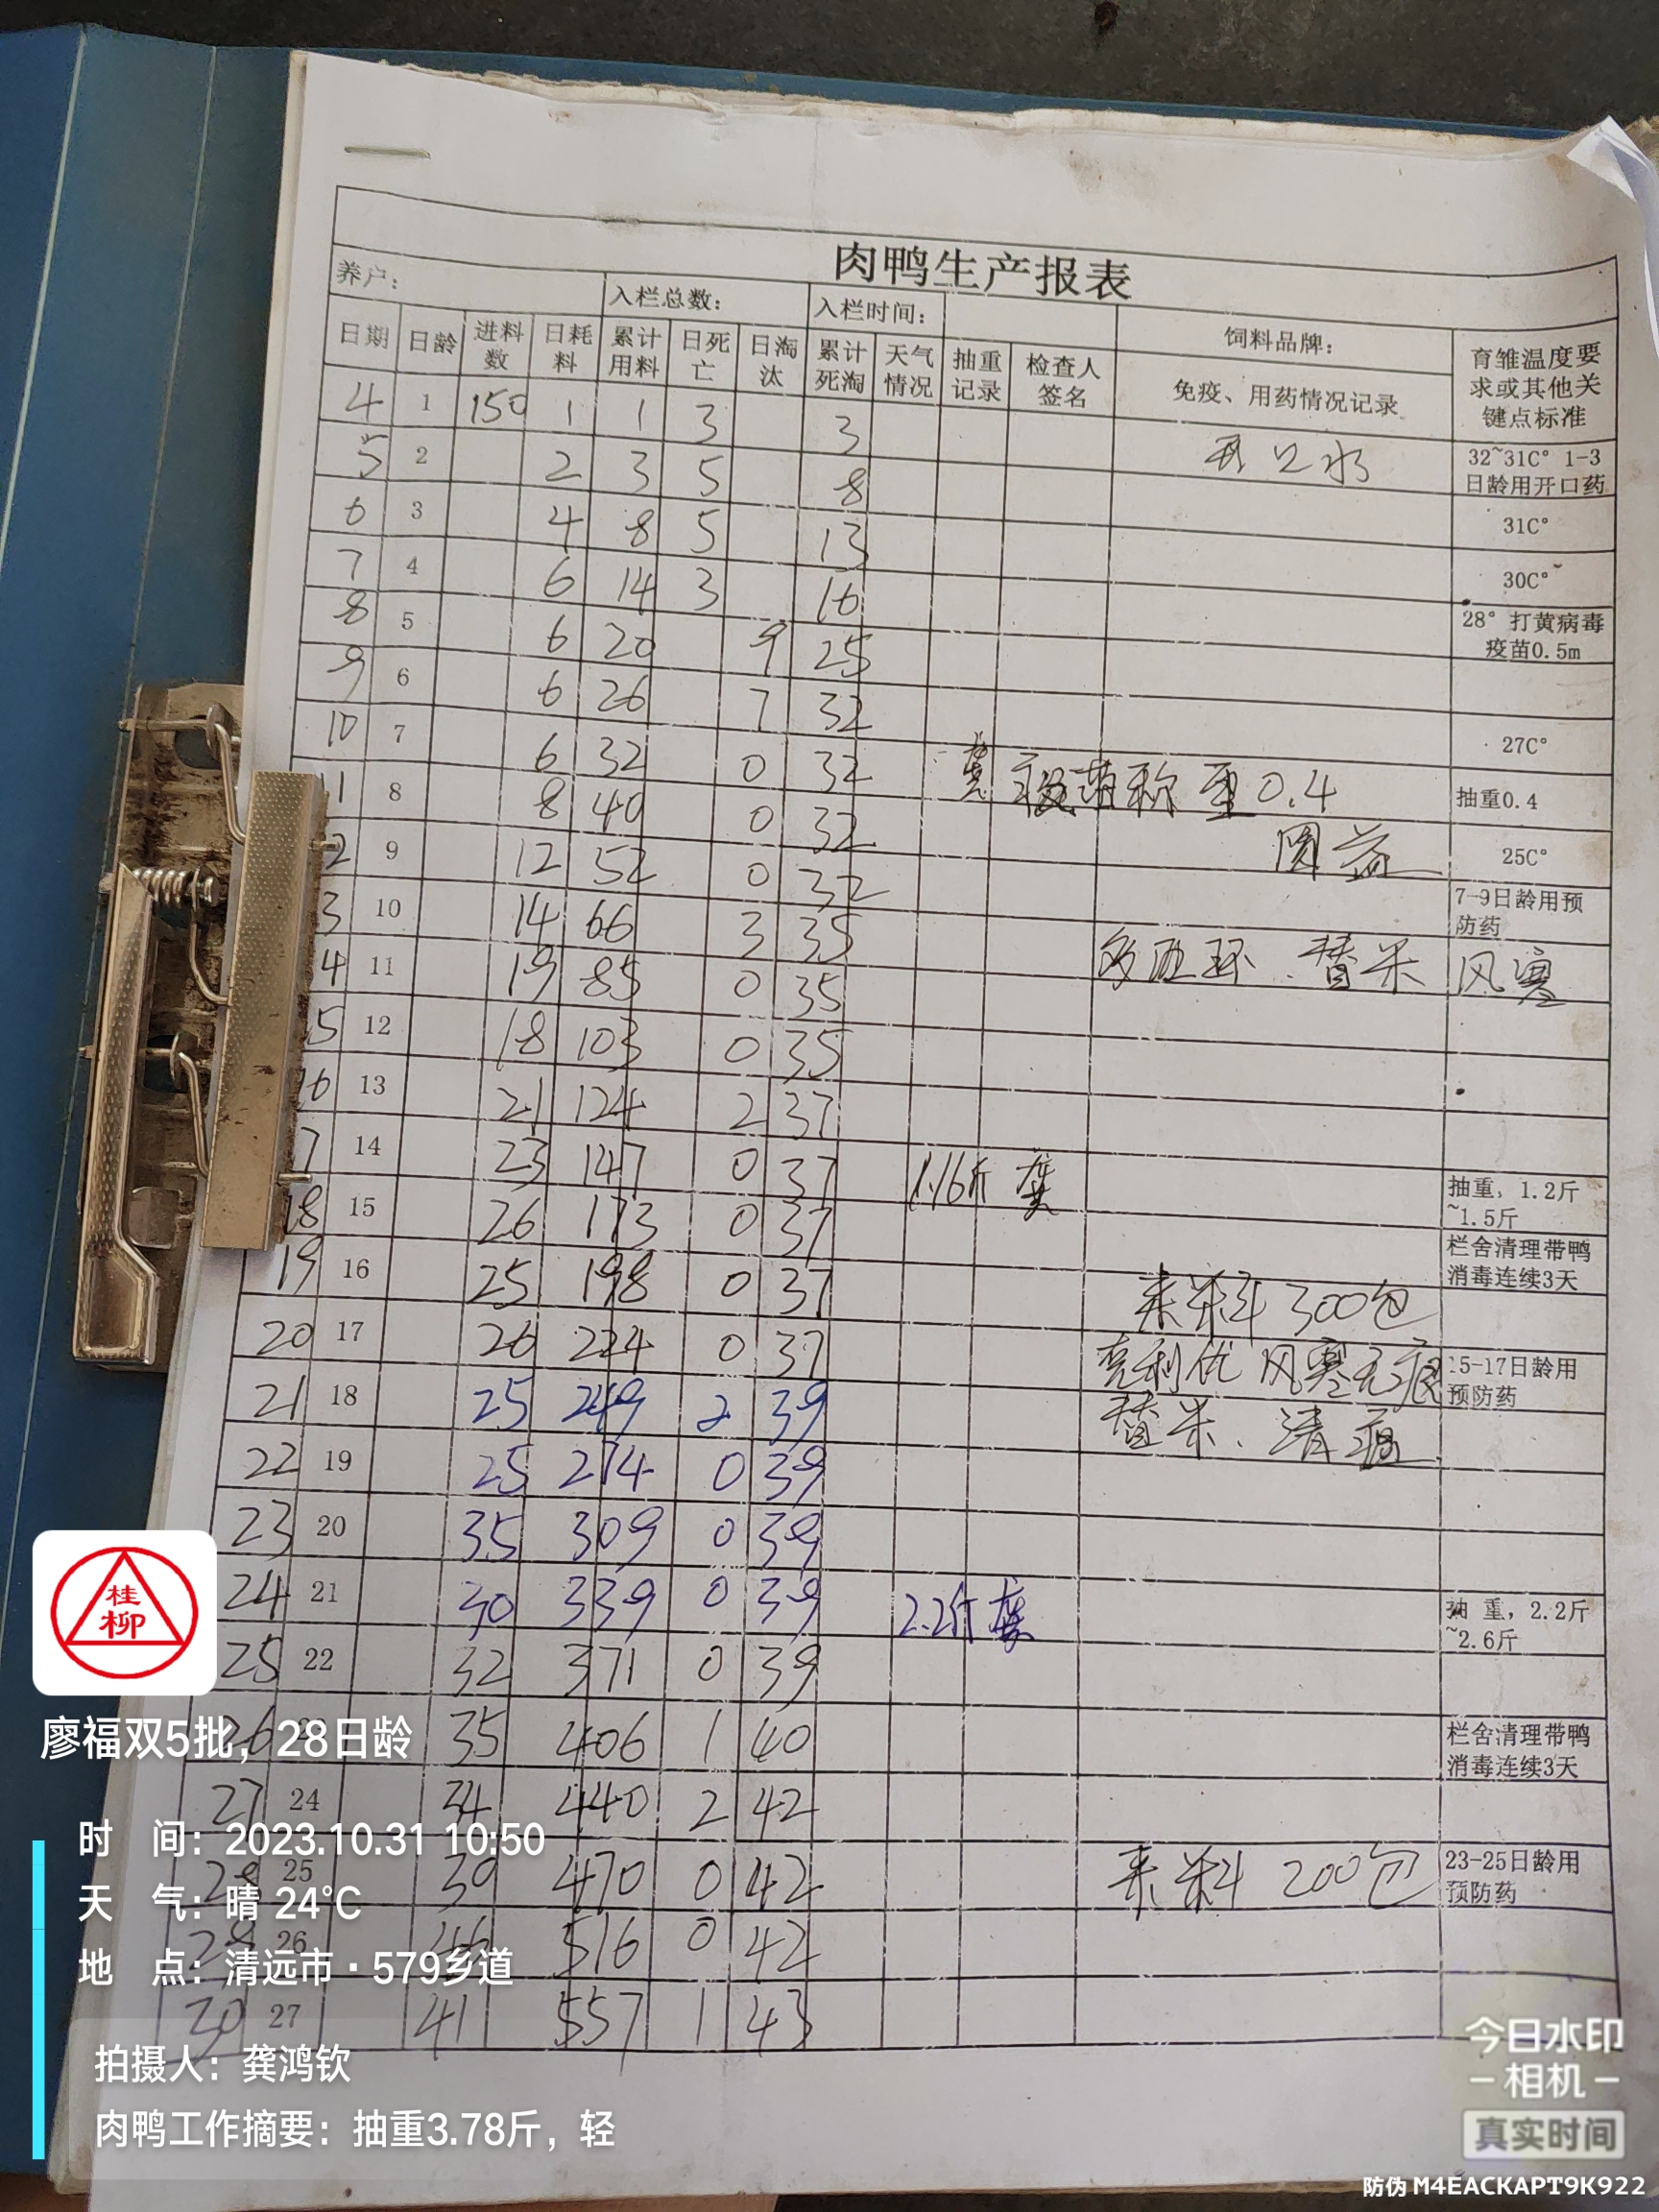 肉鸭生产报表
养户： 入栏总数： 入栏时间： 饲料品牌：
日期 日龄 进料数 日耗料 累计用料 日死亡 日淘汰 累计死淘 天气情况 抽重记录 检查人签名 免疫、用药情况记录 育雏温度要求或其他关键点标准
4 1 150 1 1 3 3 开口水 32~31C° 1-3日龄用开口药
5 2 2 3 5 8 31C°
6 3 4 8 5 13 30C°
7 4 6 14 3 16 28°打黄病毒疫苗0.5m
8 5 6 20 9 25
9 6 6 26 7 32 27C°
10 7 6 32 0 32 龚 疫苗称重0.4 抽重0.4
1 8 8 40 0 32 25C°
2 9 12 52 0 32 7-9日龄用预防药
3 10 14 66 3 35 替米 风寒
4 11 19 85 0 35
5 12 18 103 0 35
16 13 21 124 2 37
7 14 23 147 0 37 1.16斤 龚 抽重，1.2斤~1.5斤
18 15 26 173 0 37 栏舍清理带鸭消毒连续3天
19 16 25 198 0 37 来料 300包
20 17 26 224 0 37 克利优 风寒无 15-17日龄用预防药
21 18 25 249 2 39 替米、清
22 19 25 274 0 39
23 20 35 309 0 39
24 21 30 339 0 39 2.2斤 龚 抽 重，2.2斤~2.6斤
25 22 32 371 0 39
26 35 406 1 40 栏舍清理带鸭消毒连续3天
27 24 34 440 2 42
28 25 30 470 0 42 来料 200包 23-25日龄用预防药
26 46 516 0 42
30 27 41 557 1 43
桂柳
廖福双5批，28日龄
时 间：2023.10.31 10:50
天 气：晴 24°C
地 点：清远市·579乡道
拍摄人：龚鸿钦
肉鸭工作摘要：抽重3.78斤，轻
今日水印
相机
真实时间
防伪 M4EACKAPT9K922